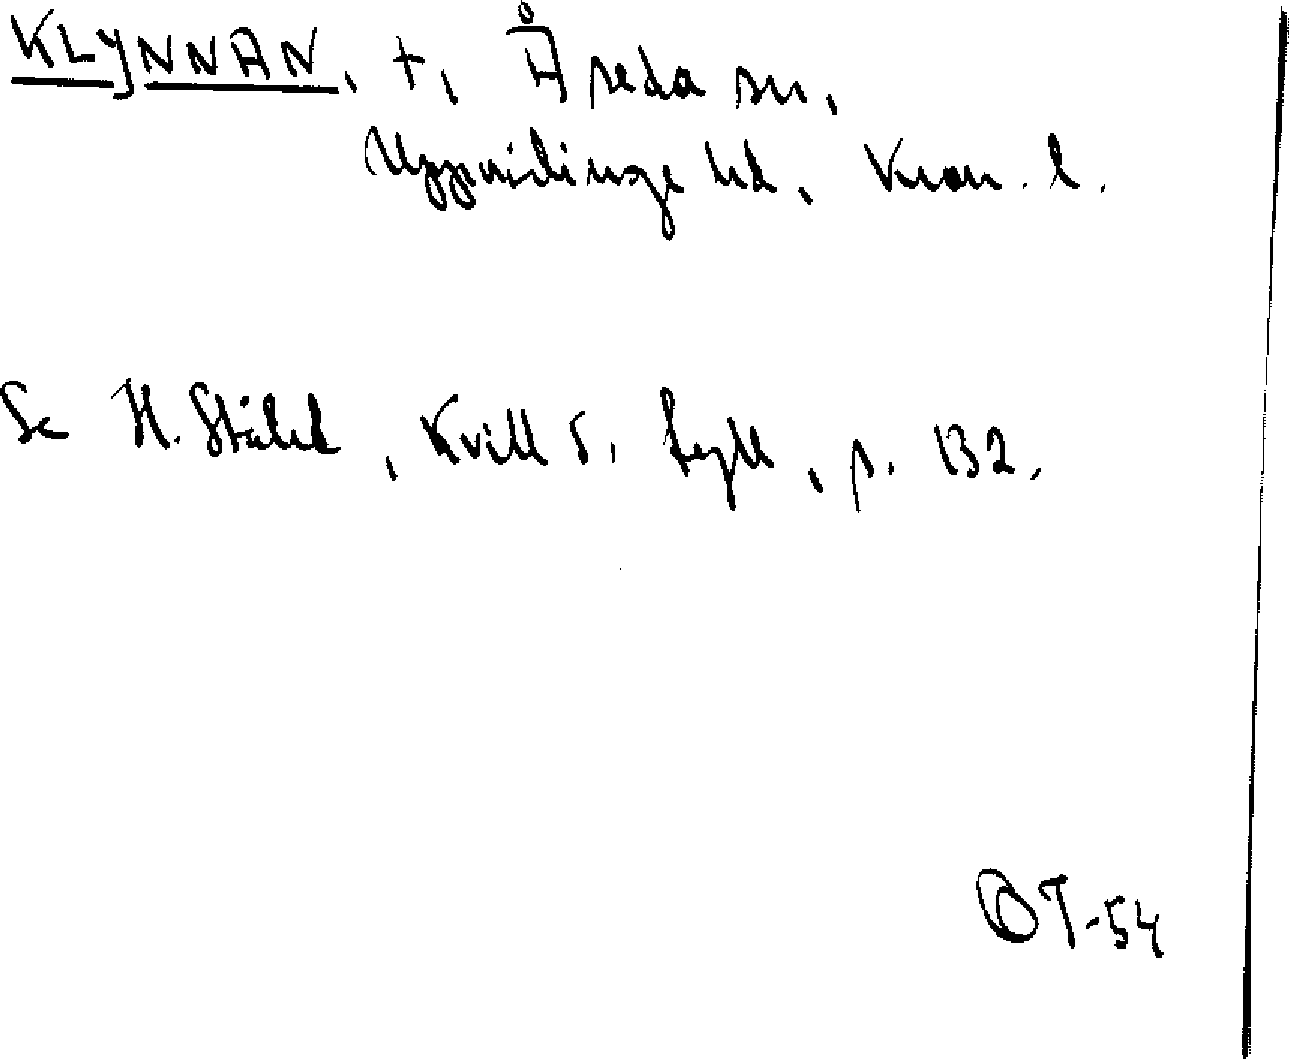 KLYNNAN, t, Åseda sn,
Uppvidinge hd, Kron. l.
Se H. Ståhl, Kvill o. Tegll, p. 132.
OT-54